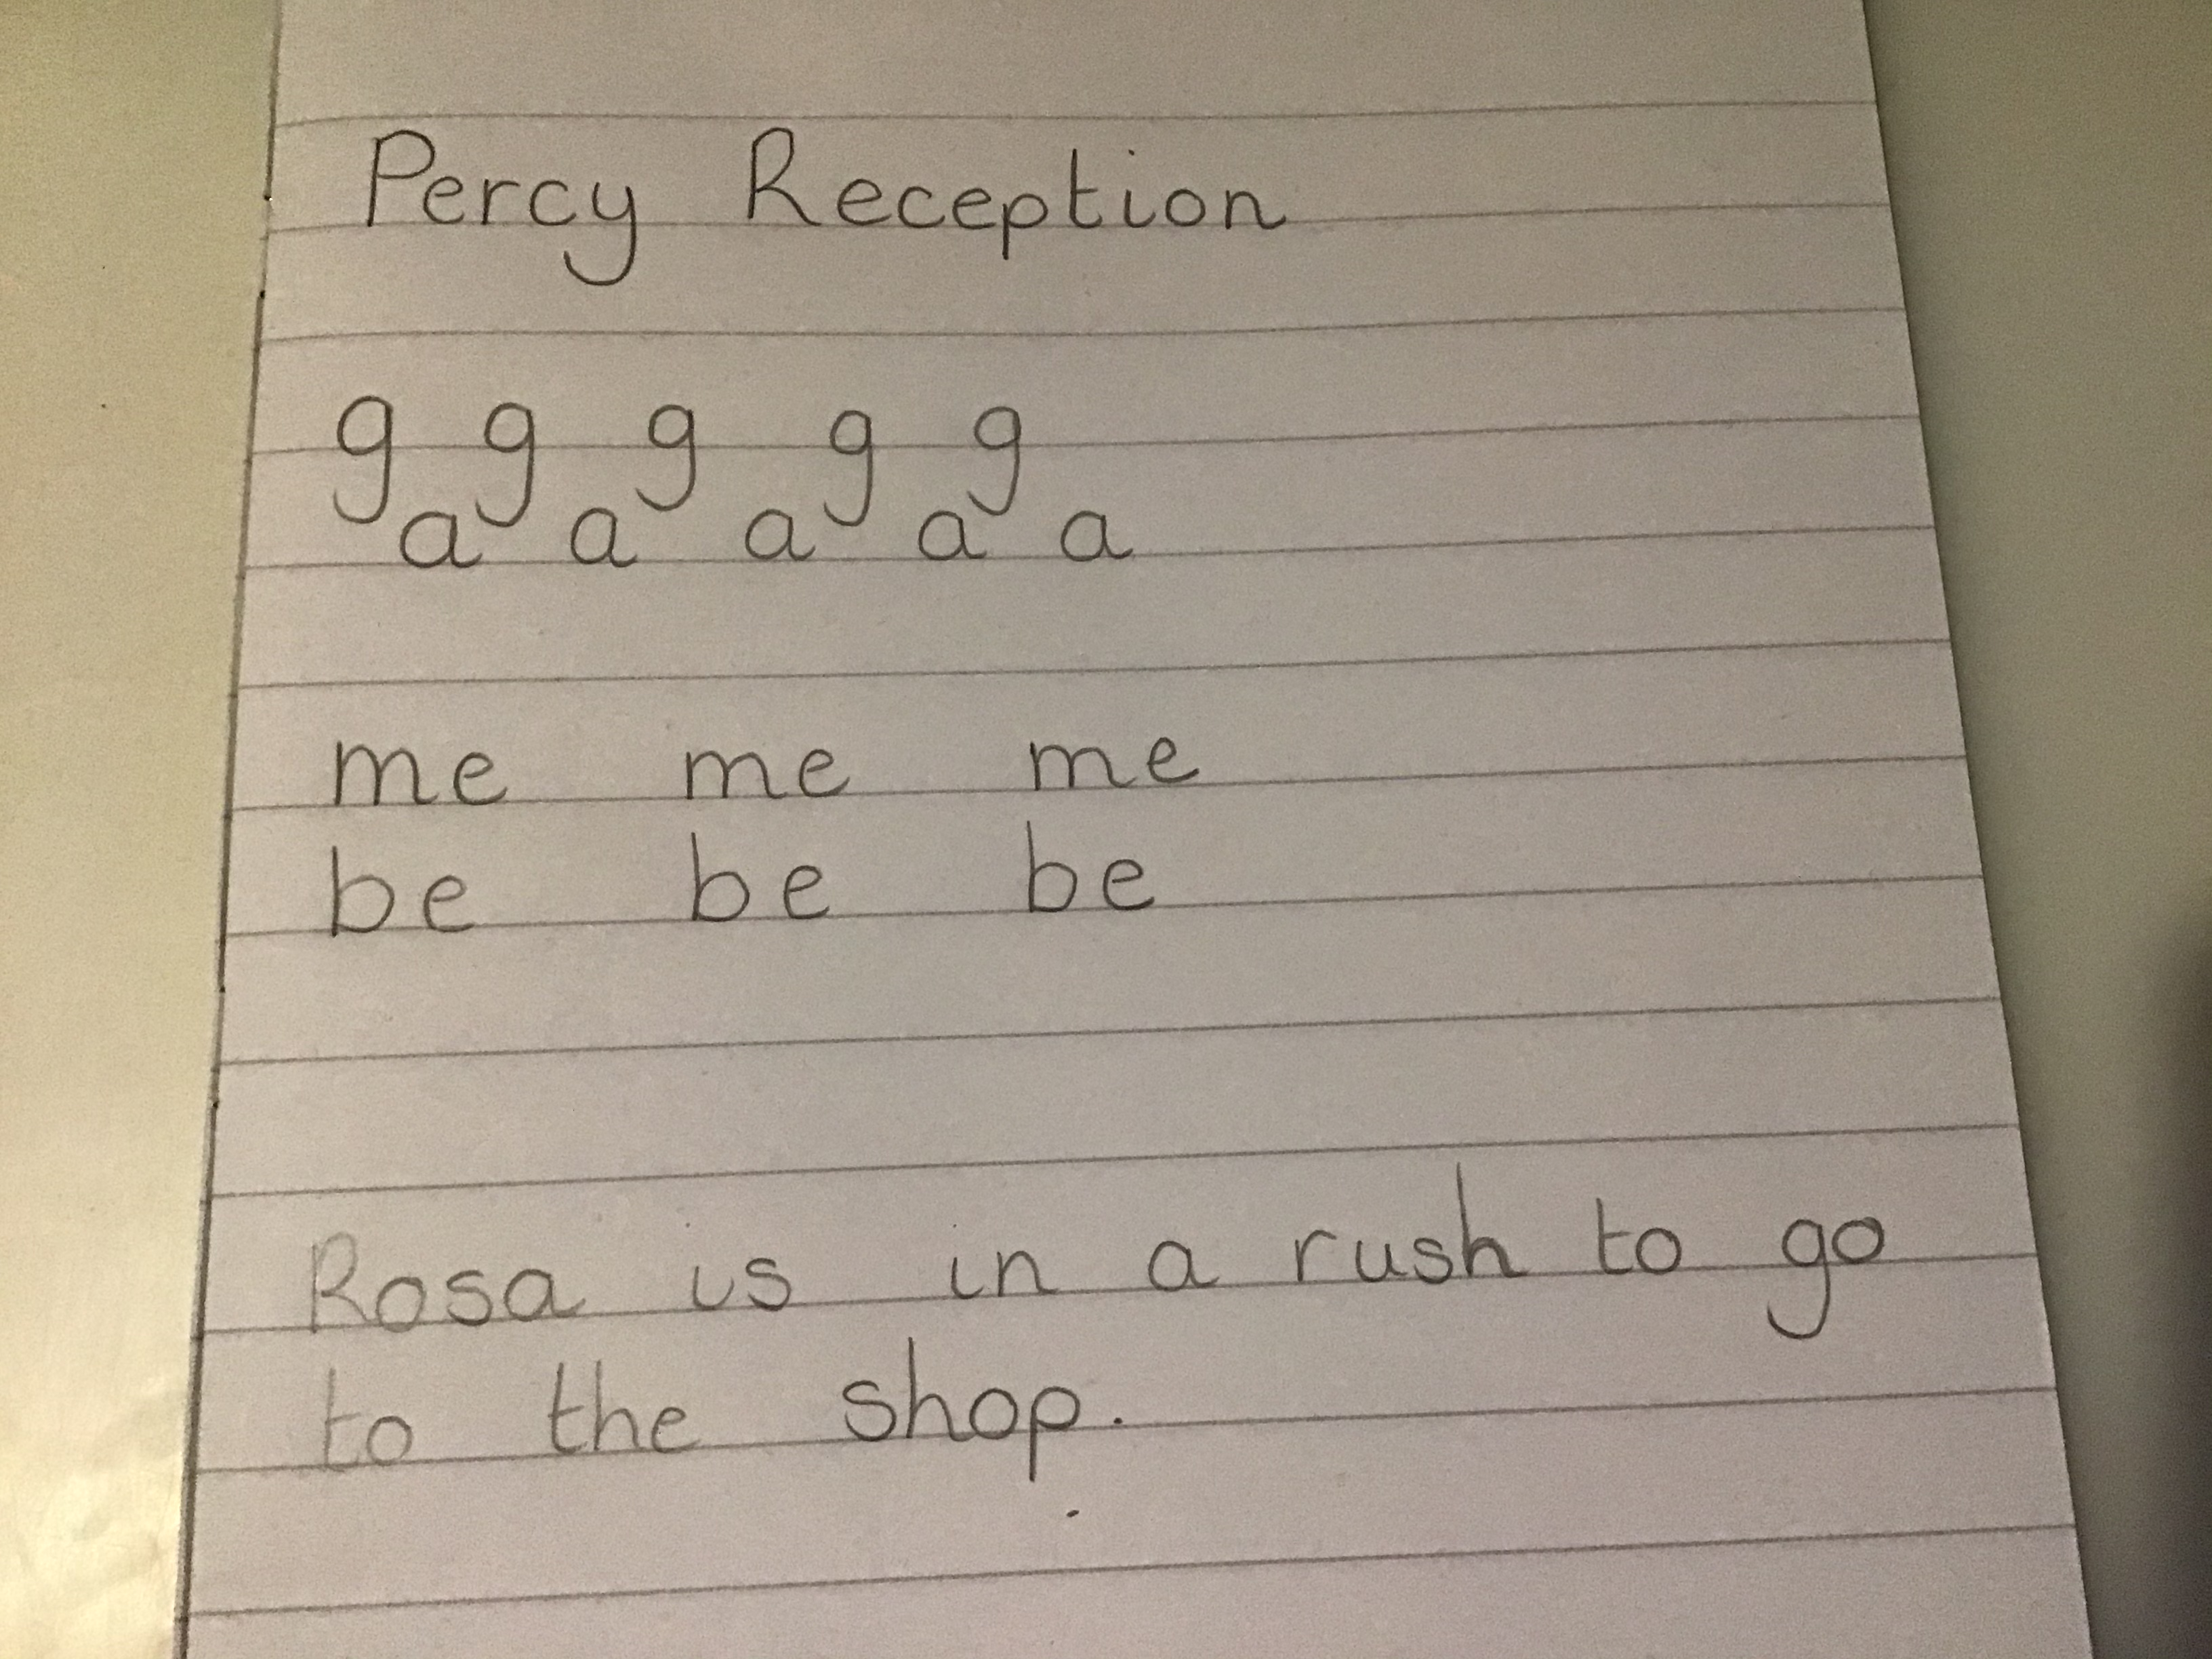 Percy Reception
g g g g g
a a a a a
me me me
be be be
Rosa is in a rush to go
to the shop.